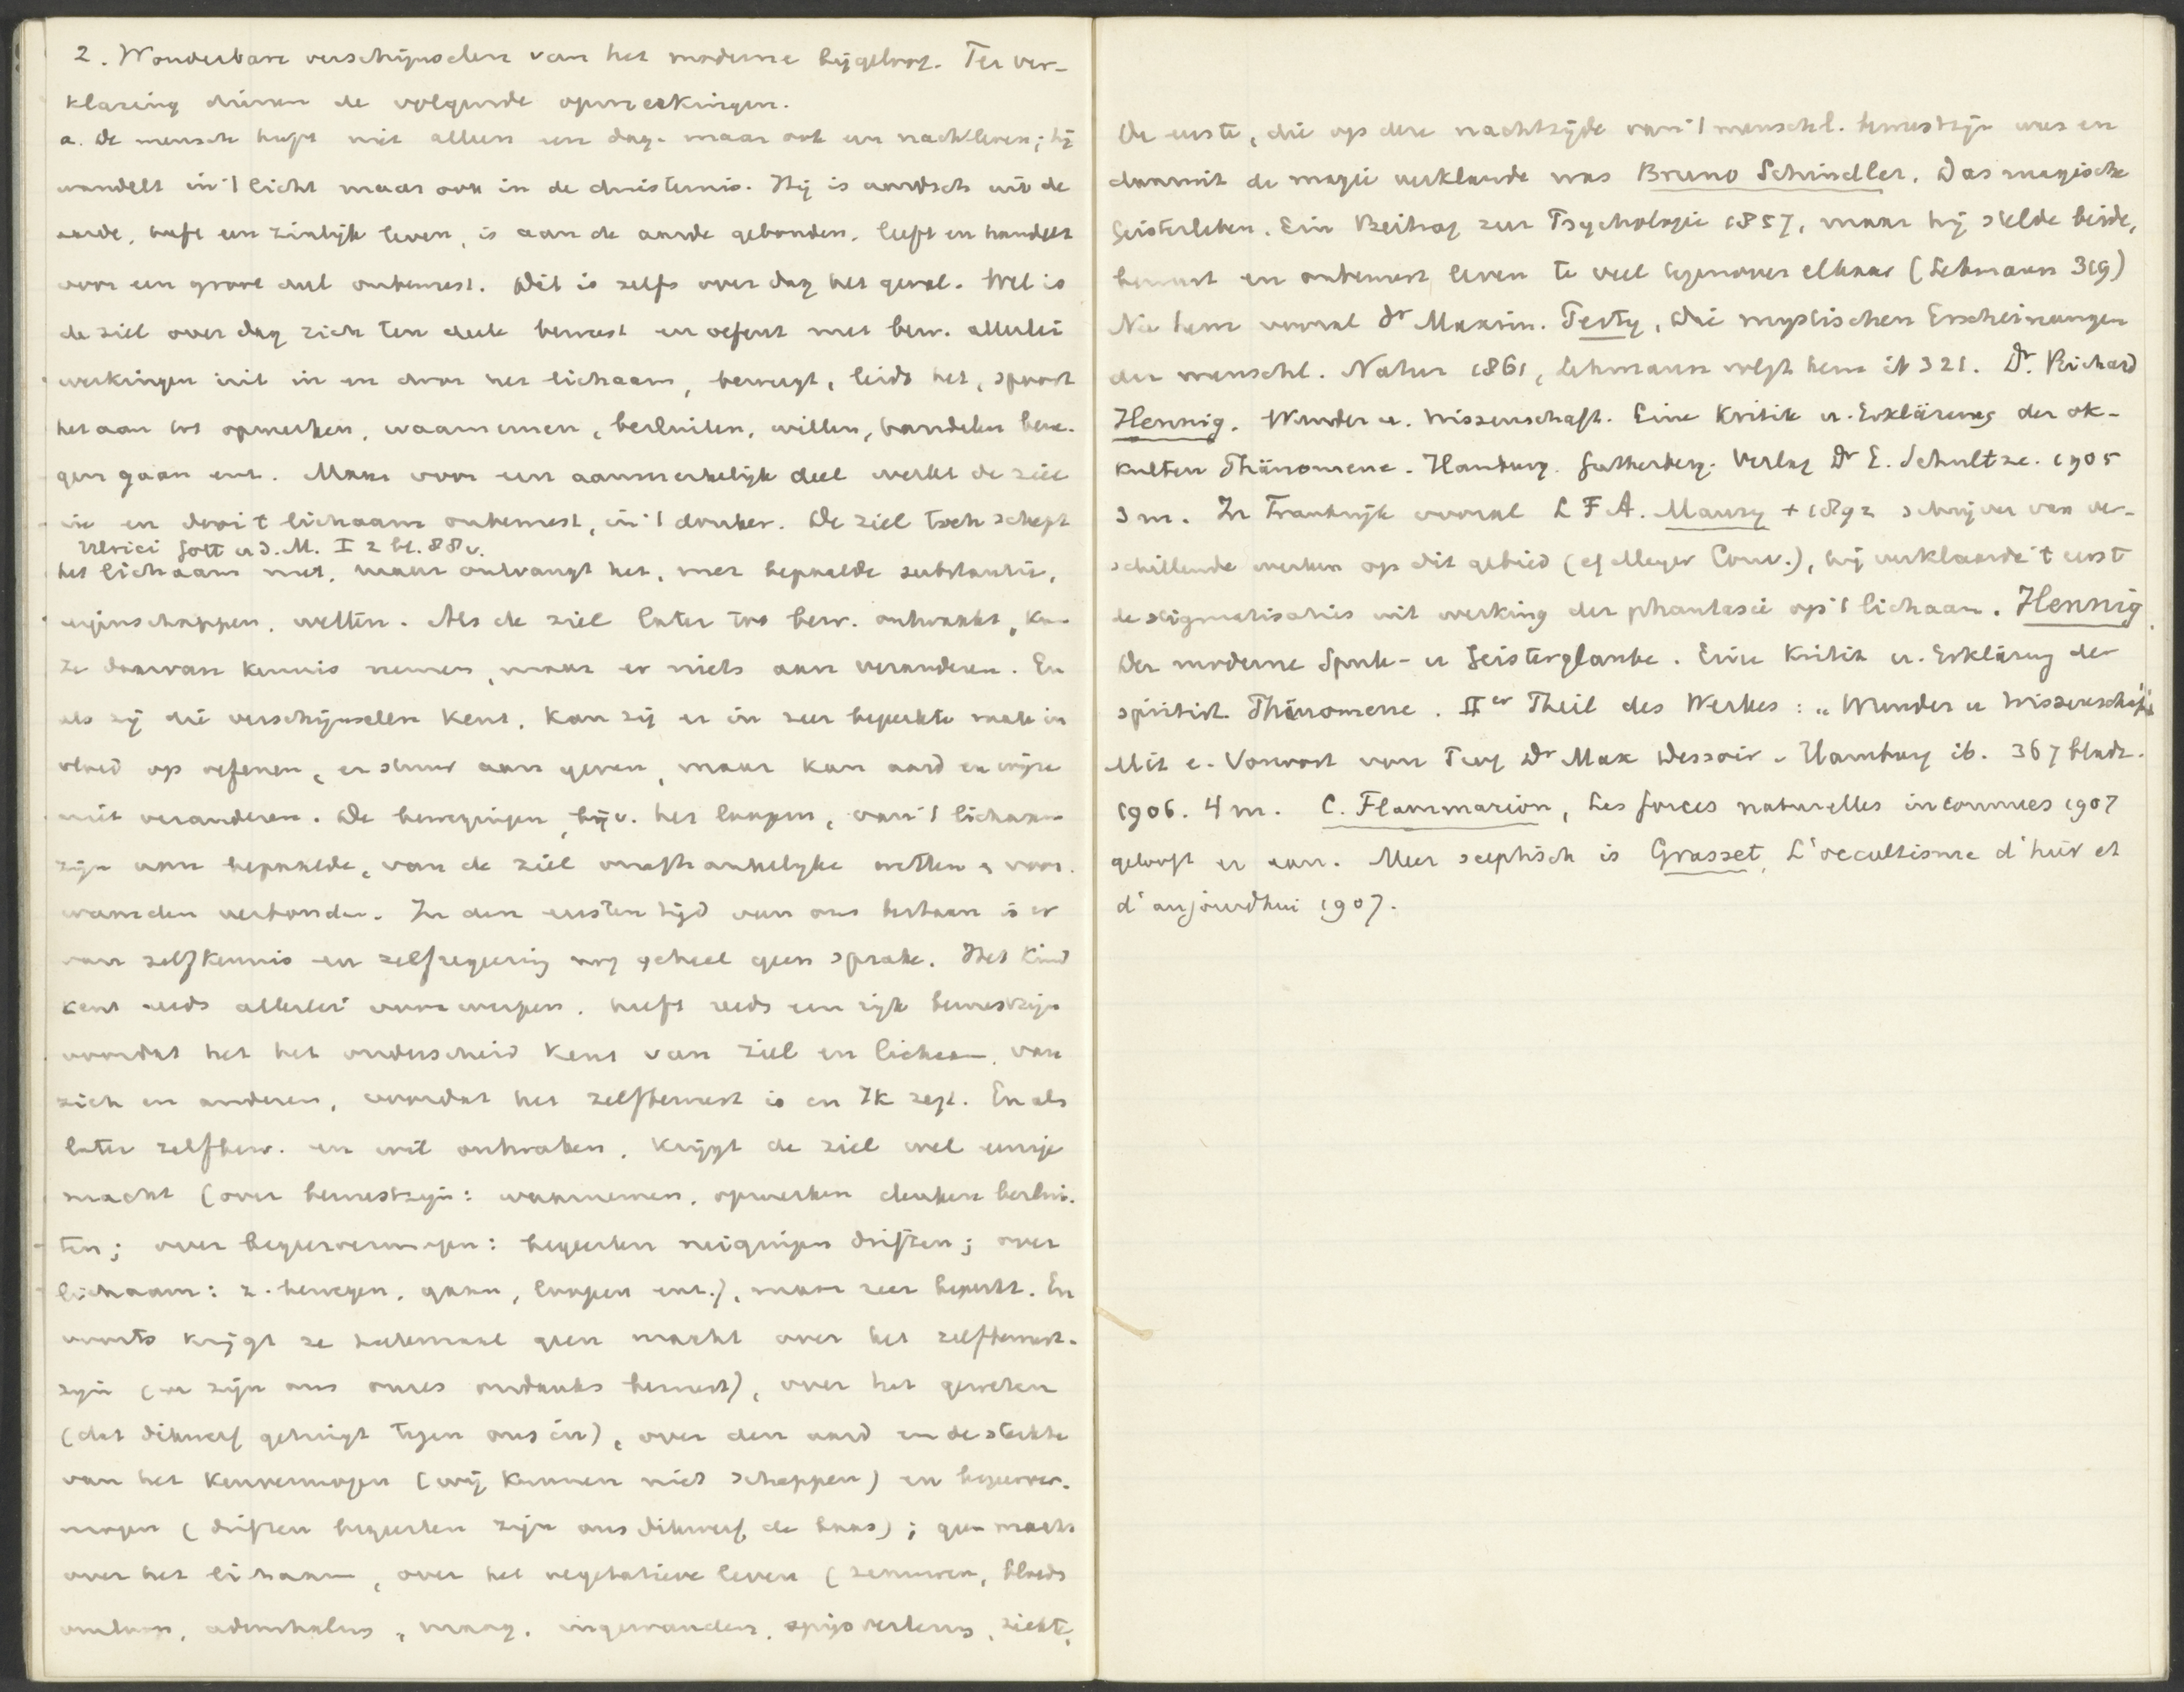 2. Wonderbare verschijnselen van het moderne bijgeloof. Ter ver-
klaring dienen de volgende opmerkingen.
a. De mensch heeft niet alleen een dag- maar ook een nachtleven; hij
wandelt in 't licht maar ook in de duisternis. Hij is aardsch uit de
aarde, heeft een zinlijk leven, is aan de aarde gebonden, leeft en handelt
voor een groot deel onbewust. Dit is zelfs over dag het geval. Wel is
de ziel over dag zich ten deele bewust en oefent met bew. allerlei
werkingen uit in en door het lichaam, beweegt, leidt het, spoort
het aan tot opmerken, waarnemen, besluiten, willen, handelen bewe-
gen gaan enz. Maar voor een aanmerkelijk deel werkt de ziel
in en door 't lichaam onbewust, in 't donker. De ziel toch schept
Ulrici Gott u d. M. I 2 bl. 88 v.
het lichaam niet, maar ontvangt het, met bepaalde substantie,
eigenschappen, wetten. Als de ziel later tot bew. ontwaakt, kan
ze daarvan kennis nemen, maar er niets aan veranderen. En
als zij die verschijnselen kent, kan zij er in zeer beperkte mate in
vloed op oefenen, er stuur aan geven, maar kan aard en wijze
niet veranderen. De bewegingen, bijv. het loopen, van 't lichaam
zijn aan bepaalde, van de ziel onafhankelijke wetten en voor-
waarden verbonden. In den eersten tijd van ons bestaan is er
van zelfkennis en zelfregeering nog geheel geen sprake. Het kind
kent reeds allerlei voorwerpen, heeft reeds een rijk bewustzijn
voordat het het onderscheid kent van ziel en lichaam, van
zich en anderen, voordat het zelfbewust is en Ik zegt. En als
later zelfbew. en wil ontwaken, krijgt de ziel wel eenige
macht (over bewustzijn: waarnemen, opmerken denken beslui-
ten; over begeervermogen: begeerten neigingen driften; over
lichaam: z. bewegen, gaan, loopen enz.), maar zeer beperkt. En
voorts krijgt ze heelemaal geen macht over het zelfbewust-
zijn (we zijn ons onzes ondanks bewust), over het geweten
(dat dikwerf getuigt tegen ons in), over den aard en de sterkte
van het kenvermogen (wij kunnen niet scheppen) en begeerver-
mogen (driften begeerten zijn ons dikwerf de baas); geen macht
over het lichaam, over het vegetatieve leven (zenuwen, bloeds
omloop, ademhaling, maag, ingewanden, spijsvertering, ziekte,
De eerste, die op deze nachtzijde van 't menschl. bewustzijn wees en
daaruit de magie verklaarde was Bruno Schindler. Das magische
Geistesleben. Ein Beitrag zur Psychologie 1857, maar hij stelde beide,
bewust en onbewust leven te veel tegenover elkaar (Lehmann 319)
Na hem vooral Dr Maxim. Perty, Die mystischen Erscheinungen
der menschl. Natur 1861, Lehmann volgt hem ib 321. Dr. Richard
Hennig. Wunder u. Wissenschaft. Eine Kritik u. Erklärung der ok-
kulten Phänomene. Hamburg. Gutenberg. Verlag Dr E. Schultze. 1905
3 m. In Frankrijk vooral L F A. Maury + 1892 schrijver van ver-
schillende werken op dit gebied (cf Meyer Conv.), hij verklaarde 't eerst
de stigmatisaties uit werking der phantasie op 't lichaam. Hennig
Der moderne Spuk- u Geisterglaube. Eine Kritik u. Erklärung der
spiritist. Phänomene. IIer Theil des Werkes: „Wunder u Wissenschaft"
Mit e. Vorwort von Prof Dr Max Dessoir. Hamburg ib. 367 bladz.
1906. 4 m. C. Flammarion, Les forces naturelles inconnues 1907
gelooft er aan. Meer sceptisch is Grasset, L'occultisme d'hier et
d'aujourdhui 1907.